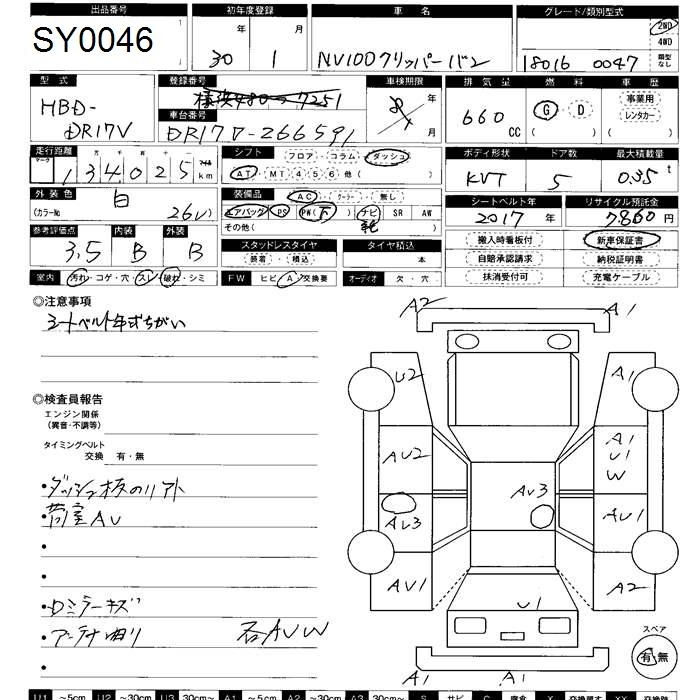 出品番号 初年度登録 車名 グレード/類別型式
SY0046 30年 1月 NV100クリッパーバン 18016 0047 2WD 4WD 類型なし
型式 登録番号 車検期限 排気量 燃料 車歴
HBD-DR17V 横浜480 7251 年 月 660CC G・D ( ) 事業用 レンタカー ( )
車台番号
DR17V-266591
走行距離 シフト フロア・コラム・ダッシュ ボディ形状 ドア数 最大積載量
マーク 十万 万 千 百 十 一
134025 km AT・MT 4 5 6 他( ) 5 0.35t
外装色 装備品 AC・クーラー・無し シートベルト年 リサイクル預託金
白 エアバッグ PS PW(下) ナビ SR AW 2017年 7860円
(カラーNo 26U) その他( )
参考評価点 内装 外装 搬入時看板付 新車保証書
3.5 B B スタッドレスタイヤ タイヤ積込 自賠承認請求 納税証明書
装着・積込 本 抹消受付可 充電ケーブル
室内 汚れ・コゲ・穴・スレ・破れ・シミ FW ヒビ・A・交換要 オーディオ 欠・穴
◎注意事項
シートベルト年式ちがい
◎検査員報告
エンジン関係
(異音・不調等)
タイミングベルト
交換 有・無
・ダッシュ板のリアト
・荷室AU
・
・
・Dミラーキズ
・アンテナ曲り 各AUW
・
A2 A1
U2 A1
AU2 A1 U1 W
AU3 AU3 AU1
AU1 A2
U1
A1 A1
スペア
有・無
U1 ~5cm U2 ~30cm U3 30cm~ A1 ~5cm A2 ~30cm A3 30cm~ S サビ C 腐食 X 交換要す XX 交換跡